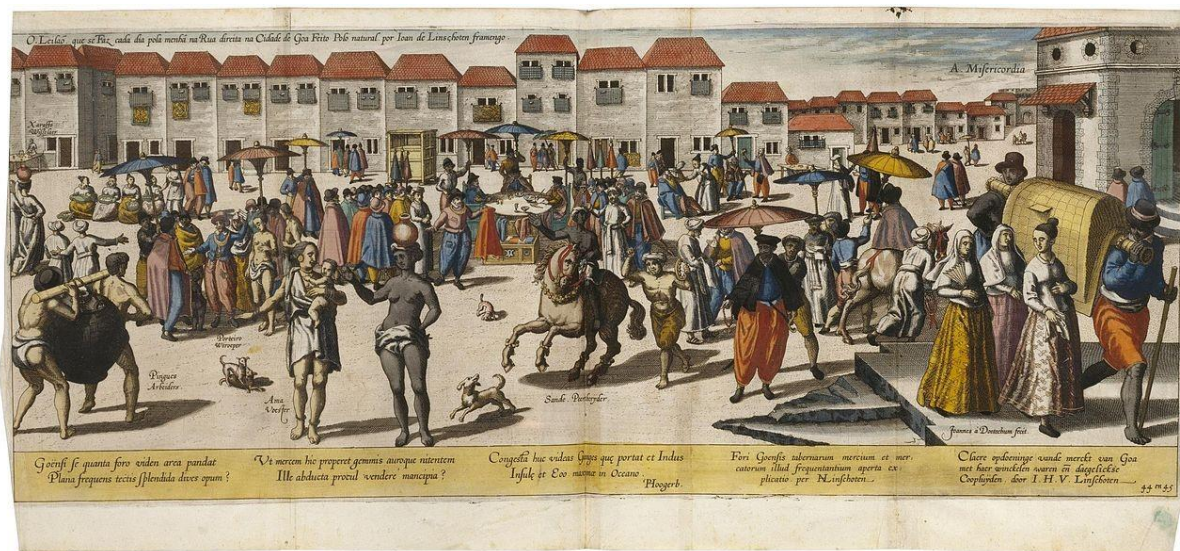 O Leilaõ que se Faz cada dia pola menhã na Rua direita na Cidade de Goa Feito Polo natural por Ioan de Linschoten framengo
A Misericordia
Porteiro
Wtroeper
Pingues
Arbeiders
Ama
Voester
Sande
Joannes à Doetechum fecit
Goënsi se quanta foro viden area pandat
Plana frequens tectis splendida dives opum?
Vt mercem hic properet gemmis auroque nitentem
Ille abducta procul vendere mancipia?
Congesta huc videas Ganges que portat et Indus
Insulę et Eoo maxima in Oceano.
PHoogerb.
Fori Goensis tabernarum mercium et mer,
catorum illud frequentantium aperta ex,
plicatio per Linschoten
Claere opdoeninge vande merckt van Goa
met haer winckelen waren en̄ dagelickse
Coopluyden door I. H. V. Linschoten
44 en 45